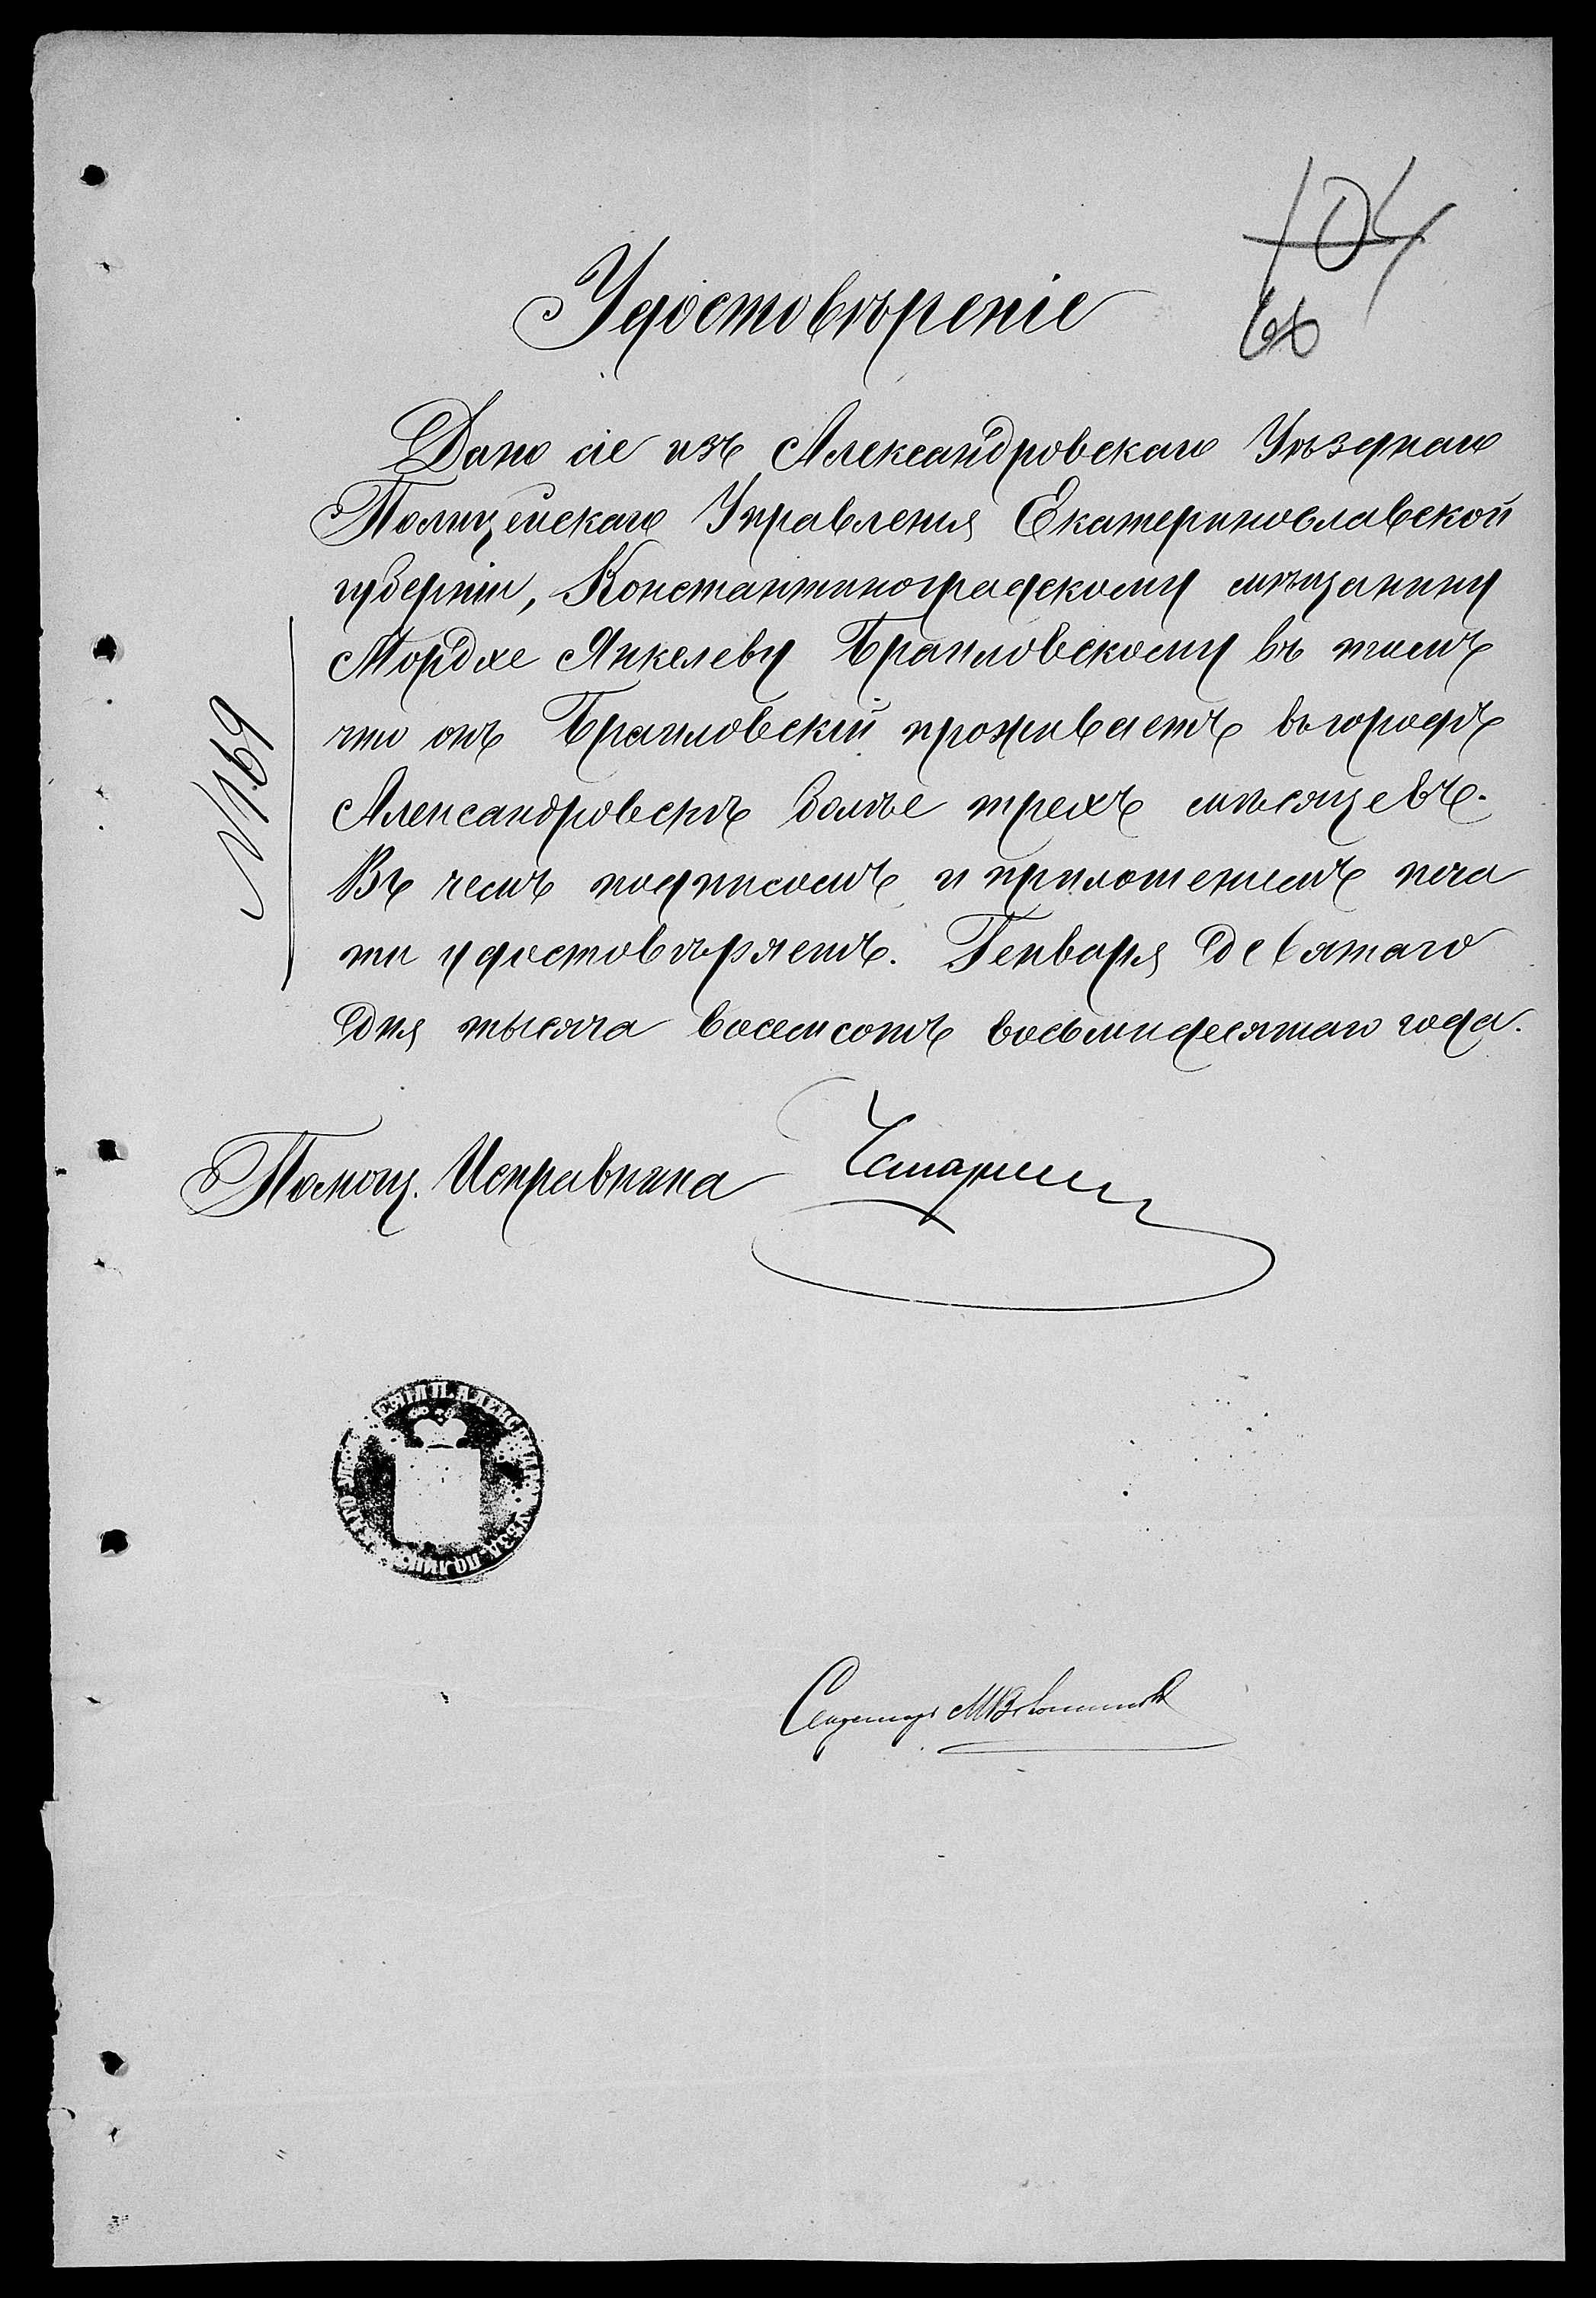 104
66
Удостовѣреніе
Дано сіе изъ Александровскаго Уѣзднаго
Полицейскаго Управленія Екатеринославской
губерніи, Константиноградскому мѣщанину
Мордхе Янкелеву Браиловскому въ томъ
что онъ Браиловскій проживаетъ въ городѣ
Александровскѣ болѣе трехъ мѣсяцевъ.
Въ чемъ подписомъ и приложеніемъ печа
ти удостовѣряетъ. Генваря девятаго
дня тысяча восемсотъ восьмидесятаго года.
№ 169
Помощ. Исправника
УѢЗД. ПОЛИЦ
Секретарь